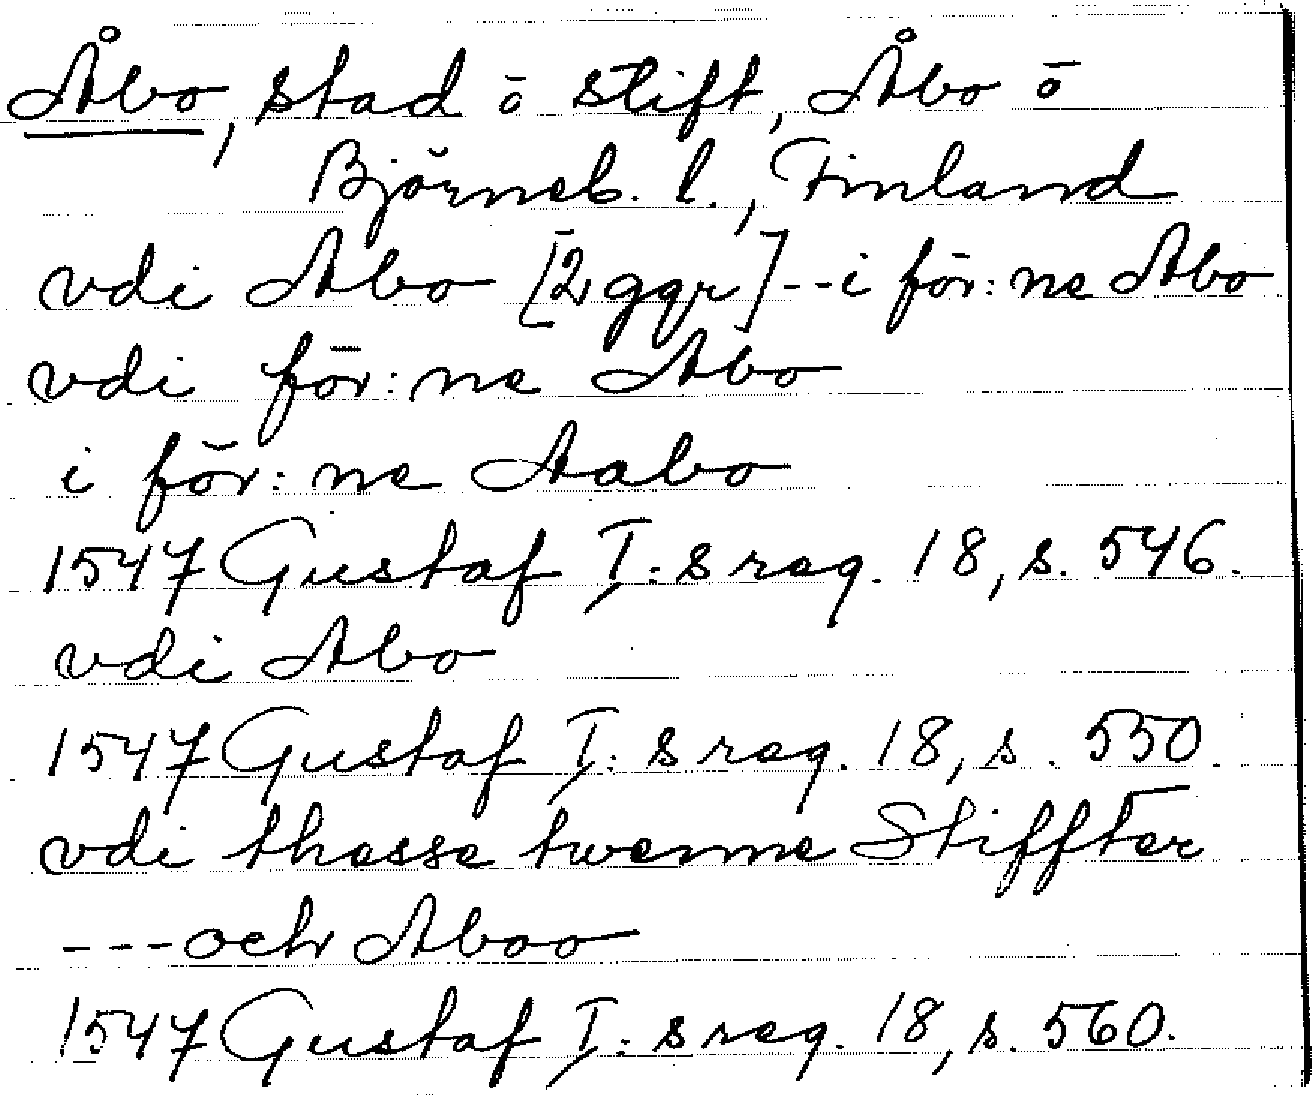 Åbo, stad o stift, Åbo o
Björneb. l., Finland
vdi Abo [2 ggr] -- i för:ne Abo
vdi för:ne Abo
i för:ne Aabo
1547 Gustaf I:s reg. 18, s. 546.
vdi Abo
1547 Gustaf I:s reg. 18, s. 550.
vdi thesse twenne Stiffter
--- och Aboo
1547 Gustaf I:s reg. 18, s. 560.